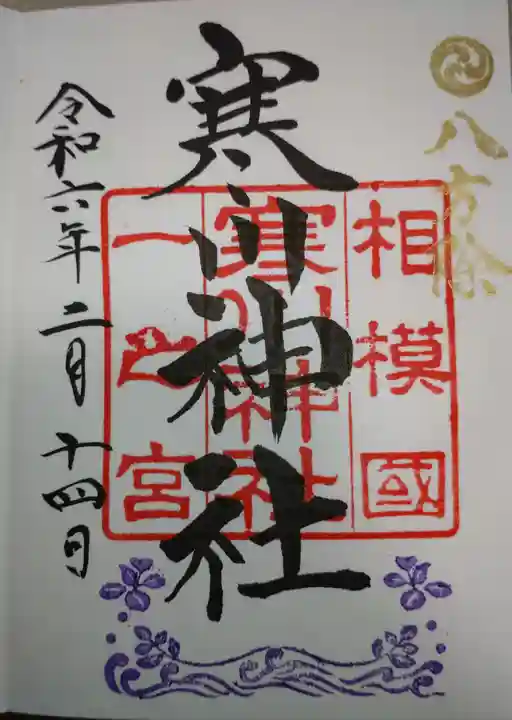 八方除
寒川神社
相模國
寒川神社
一之宮
令和六年二月十四日